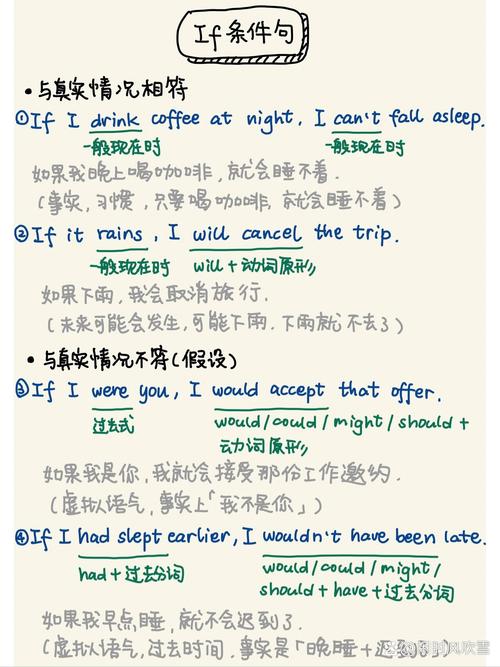 If条件句
·与真实情况相符
①If I drink coffee at night, I can't fall asleep.
一般现在时 一般现在时
如果我晚上喝咖啡,就会睡不着.
(事实,习惯,只要喝咖啡,就会睡不着)
②If it rains, I will cancel the trip.
一般现在时 will+动词原形
如果下雨,我会取消旅行.
(未来可能会发生,可能下雨.下雨就不去了)
·与真实情况不符(假设)
③If I were you, I would accept that offer.
过去式 would/could/might/should+
动词原形
如果我是你,我就会接受那份工作邀约.
(虚拟语气,事实上「我不是你」)
④If I had slept earlier, I wouldn't have been late.
had+过去分词 would/could/might/
should+have+过去分词
如果我早点睡,就不会迟到了.
(虚拟语气,过去时间,事实是「晚睡+迟到了」)